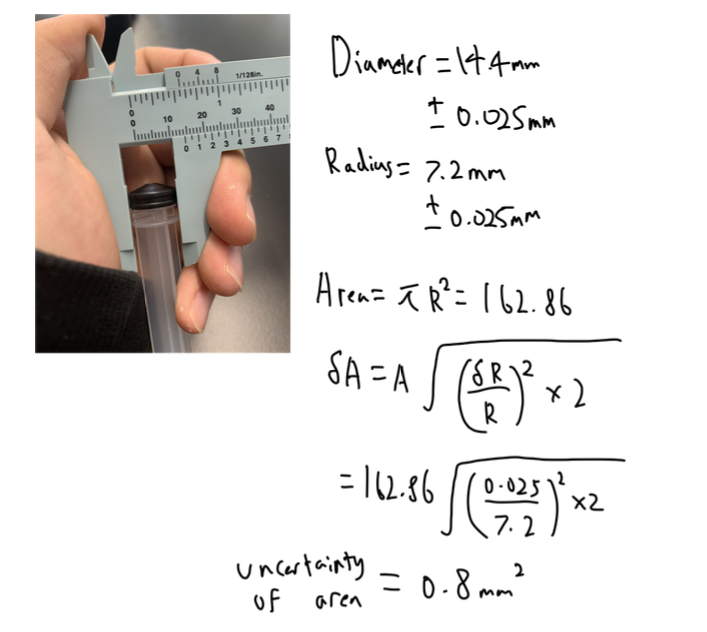 0 4 8 1/128in.
0 1
0 10 20 30 40
0 1 2 3 4 5 6 7
Diameter = 14.4mm
± 0.025mm
Radius = 7.2mm
± 0.025mm
Area = πR² = 162.86
δA = A √((δR/R)² × 2)
= 162.86 √((0.025/7.2)² × 2)
uncertainty
of area = 0.8 mm²